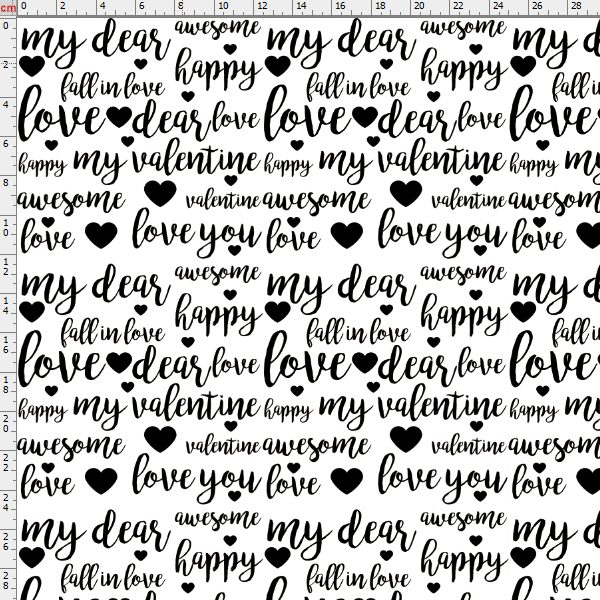 cm 0 2 4 6 8 10 12 14 16 18 20 22 24 26 28
0 my dear awesome my dear awesome my d
2 happy happy
fall in love fall in love fall i
4 love dear love love dear love love
6 happy my valentine happy my valentine happy my
8 awesome valentine awesome valentine awesom
10 love love you love love you love
12 my dear awesome my dear awesome my d
14 happy happy
fall in love fall in love fall i
16 love dear love love dear love love
18 happy my valentine happy my valentine happy my
20 awesome valentine awesome valentine awesom
22 love love you love love you love
24 my dear awesome my dear awesome my d
26 happy happy
28 fall in love fall in love fall i